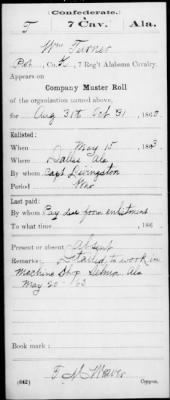 Confederate.
T 7 Cav. Ala.
Wm Turner
Pvt, Co. K, 7 Reg't Alabama Cavalry.
Appears on
Company Muster Roll
of the organization named above,
for Aug 31st to Oct 31, 186
Enlisted:
When May 15, 1863.
Where Dallas Ala
By whom Capt Livingston
Period War
Last paid:
By whom Pay due from enlistment
To what time , 186 .
Present or absent Absent
Remarks: Detailed to work in
Machine Shop Selma Ala
May 20 63
Book mark:
(642) Copyist.